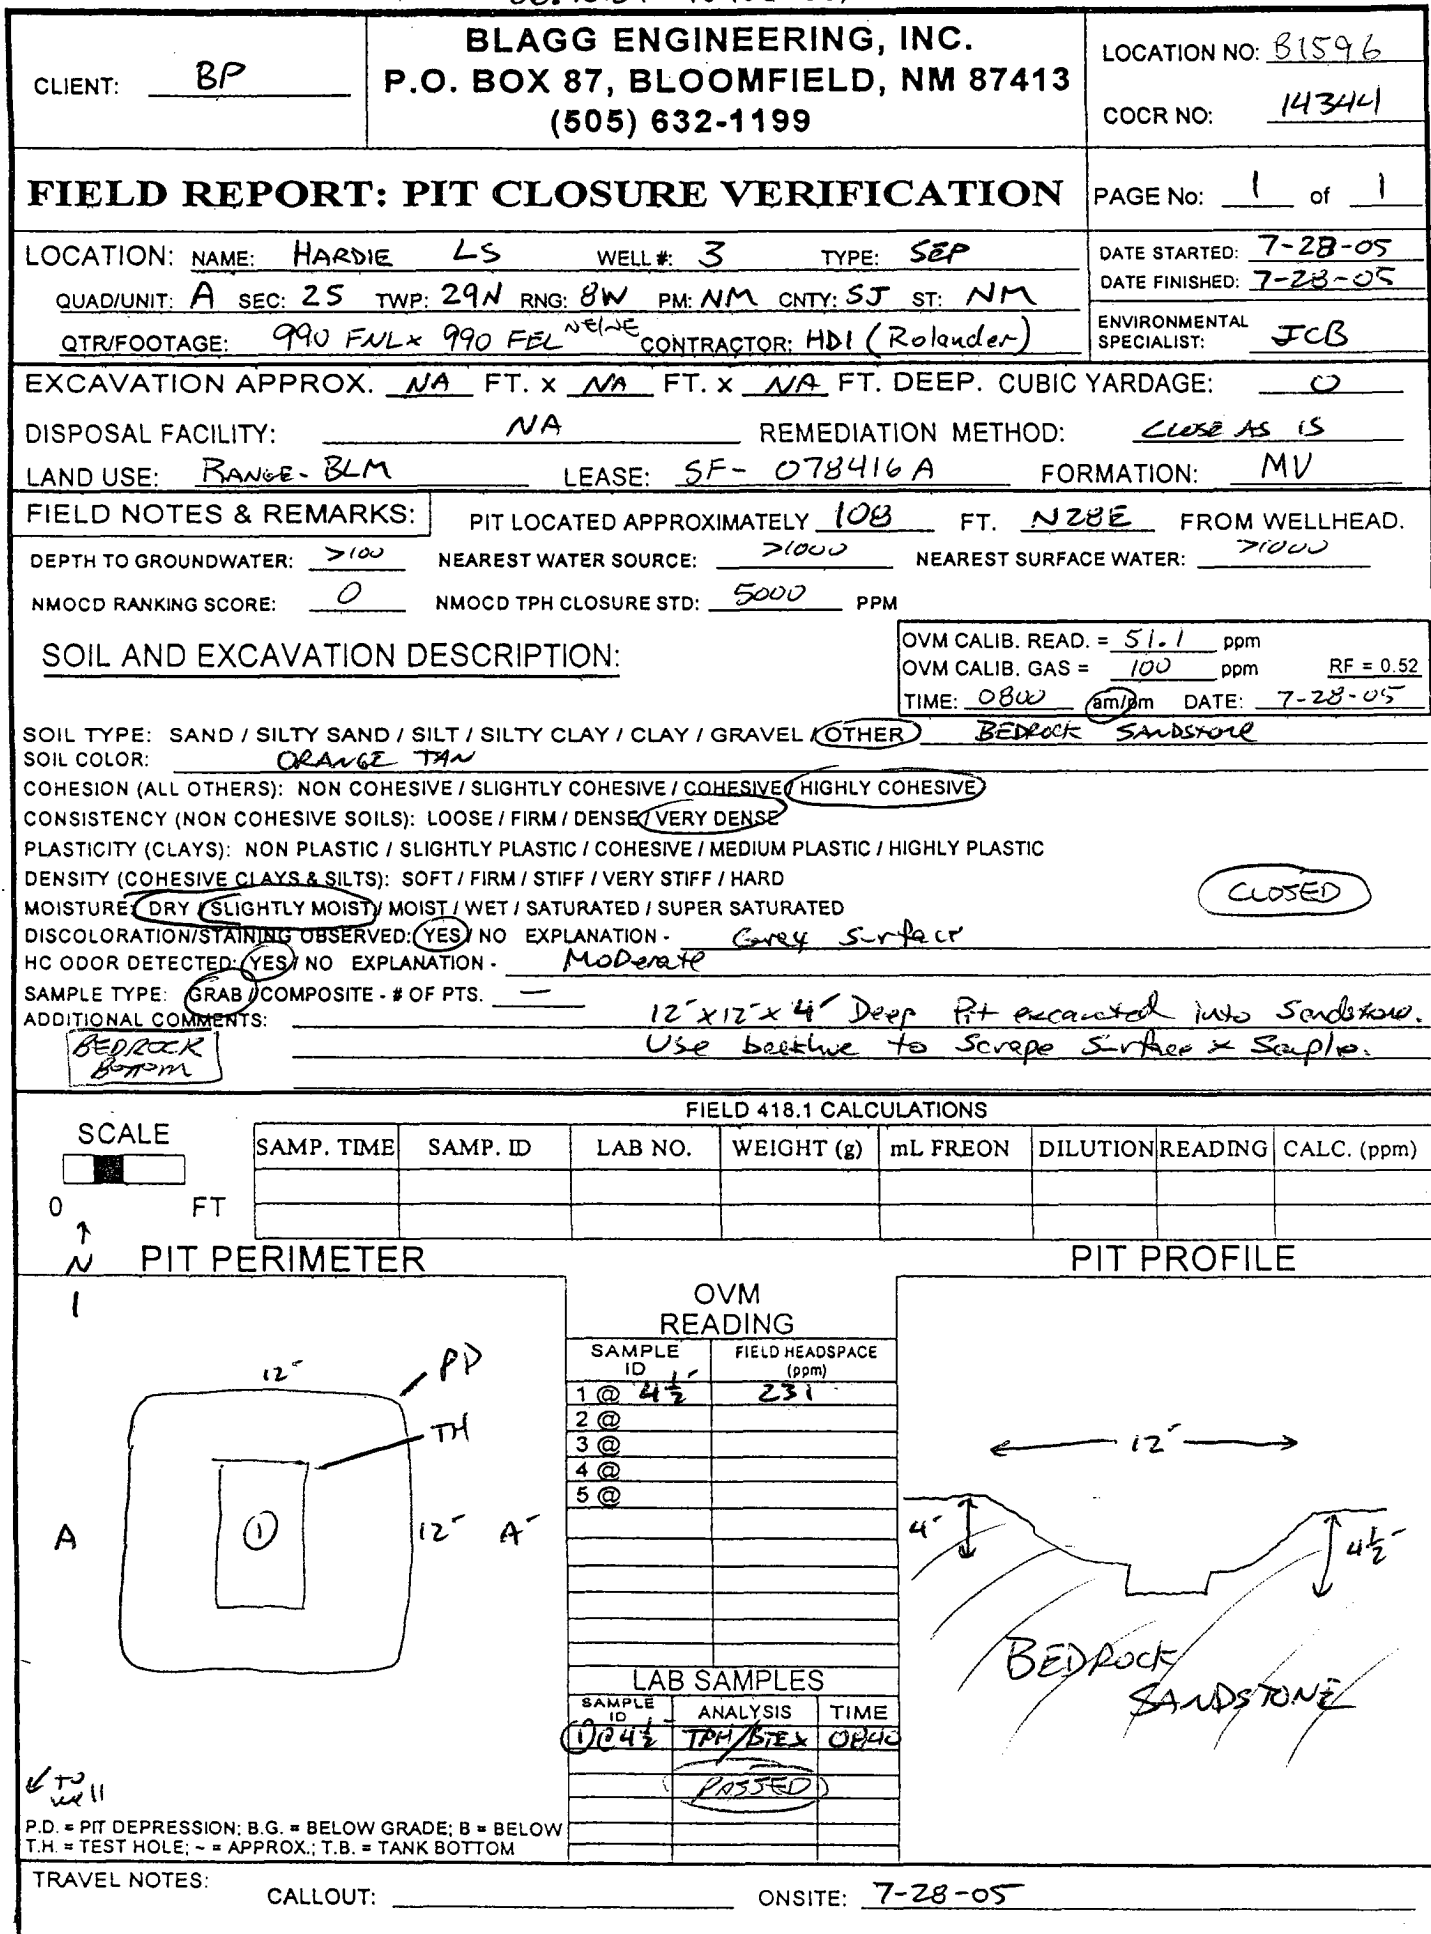 BLAGG ENGINEERING, INC.
P.O. BOX 87, BLOOMFIELD, NM 87413
(505) 632-1199
CLIENT: BP
LOCATION NO: B1596
COCR NO: 14344
FIELD REPORT: PIT CLOSURE VERIFICATION
PAGE No: 1 of 1
LOCATION: NAME: HARDIE LS WELL #: 3 TYPE: SEP
QUAD/UNIT: A SEC: 25 TWP: 29N RNG: 8W PM: NM CNTY: SJ ST: NM
QTR/FOOTAGE: 990 FNL x 990 FEL NE/NE CONTRACTOR: HDI (Rolander)
DATE STARTED: 7-28-05
DATE FINISHED: 7-28-05
ENVIRONMENTAL
SPECIALIST: JCB
EXCAVATION APPROX. NA FT. x NA FT. x NA FT. DEEP. CUBIC YARDAGE: 0
DISPOSAL FACILITY: NA REMEDIATION METHOD: CLOSE AS IS
LAND USE: RANGE-BLM LEASE: SF- 078416A FORMATION: MV
FIELD NOTES & REMARKS: PIT LOCATED APPROXIMATELY 108 FT. N28E FROM WELLHEAD.
DEPTH TO GROUNDWATER: >100 NEAREST WATER SOURCE: >1000 NEAREST SURFACE WATER: >1000
NMOCD RANKING SCORE: 0 NMOCD TPH CLOSURE STD: 5000 PPM
SOIL AND EXCAVATION DESCRIPTION:
OVM CALIB. READ. = 51.1 ppm
OVM CALIB. GAS = 100 ppm RF = 0.52
TIME: 0800 am/pm DATE: 7-28-05
SOIL TYPE: SAND / SILTY SAND / SILT / SILTY CLAY / CLAY / GRAVEL / OTHER BEDROCK SANDSTONE
SOIL COLOR: ORANGE TAN
COHESION (ALL OTHERS): NON COHESIVE / SLIGHTLY COHESIVE / COHESIVE / HIGHLY COHESIVE
CONSISTENCY (NON COHESIVE SOILS): LOOSE / FIRM / DENSE / VERY DENSE
PLASTICITY (CLAYS): NON PLASTIC / SLIGHTLY PLASTIC / COHESIVE / MEDIUM PLASTIC / HIGHLY PLASTIC
DENSITY (COHESIVE CLAYS & SILTS): SOFT / FIRM / STIFF / VERY STIFF / HARD
CLOSED
MOISTURE: DRY / SLIGHTLY MOIST / MOIST / WET / SATURATED / SUPER SATURATED
DISCOLORATION/STAINING OBSERVED: YES / NO EXPLANATION - Grey Surface
HC ODOR DETECTED: YES / NO EXPLANATION - MODerate
SAMPLE TYPE: GRAB / COMPOSITE - # OF PTS. —
ADDITIONAL COMMENTS: 12' x 12' x 4' Deep Pit excavated into Sandstone.
Use backhoe to Scrape Surface & Sample.
BEDROCK
Bottom
FIELD 418.1 CALCULATIONS
SCALE
0 FT
SAMP. TIME SAMP. ID LAB NO. WEIGHT (g) mL FREON DILUTION READING CALC. (ppm)
N
PIT PERIMETER
PIT PROFILE
OVM
READING
SAMPLE ID FIELD HEADSPACE (ppm)
1 @ 4½' 231
2 @
3 @
4 @
5 @
12'
PD
TH
1
A
12'
A'
12'
4'
4½'
BEDROCK
SANDSTONE
LAB SAMPLES
SAMPLE ID ANALYSIS TIME
①@4½' TPH/BTEX 0840
PASSED
to well
P.D. = PIT DEPRESSION; B.G. = BELOW GRADE; B = BELOW
T.H. = TEST HOLE; ~ = APPROX.; T.B. = TANK BOTTOM
TRAVEL NOTES: CALLOUT: ONSITE: 7-28-05